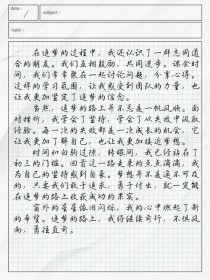 date:
subject:
topic:
在追梦的过程中，我还认识了一群志同道
合的朋友。我们互相鼓励，共同进步。课余时
间，我们常常聚在一起讨论问题，分享心得。
这样的学习氛围，让我感受到团队的力量，也
让我更加坚定了追梦的信念。
当然，追梦的路上并不总是一帆风顺。面
对挫折，我学会了坚持，学会了从失败中汲取
经验。每一次的失败都是一次成长的机会，它
让我更加了解自己，也让我更加接近梦想。
时间如白驹过隙，转眼间，我已经站在了
初三的门槛。回首这一路走来的点点滴滴，我
为自己的坚持感到自豪。梦想并不是遥不可及
的，只要我们敢于追求，勇于付出，就一定能
在追梦的路上收获成功的果实。
窗外的星星依旧闪烁，我的心中燃起了新
的希望。追梦的路上，我将继续前行，不惧风
雨，勇往直前。